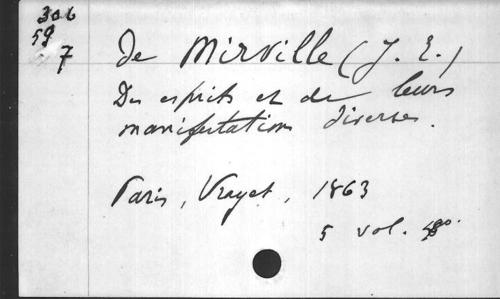 306
59
7
de Mirville (J. E.)
Des esprits et de leurs
manifestations diverses.
Paris, Vrayet, 1863
5 vol. 8°.